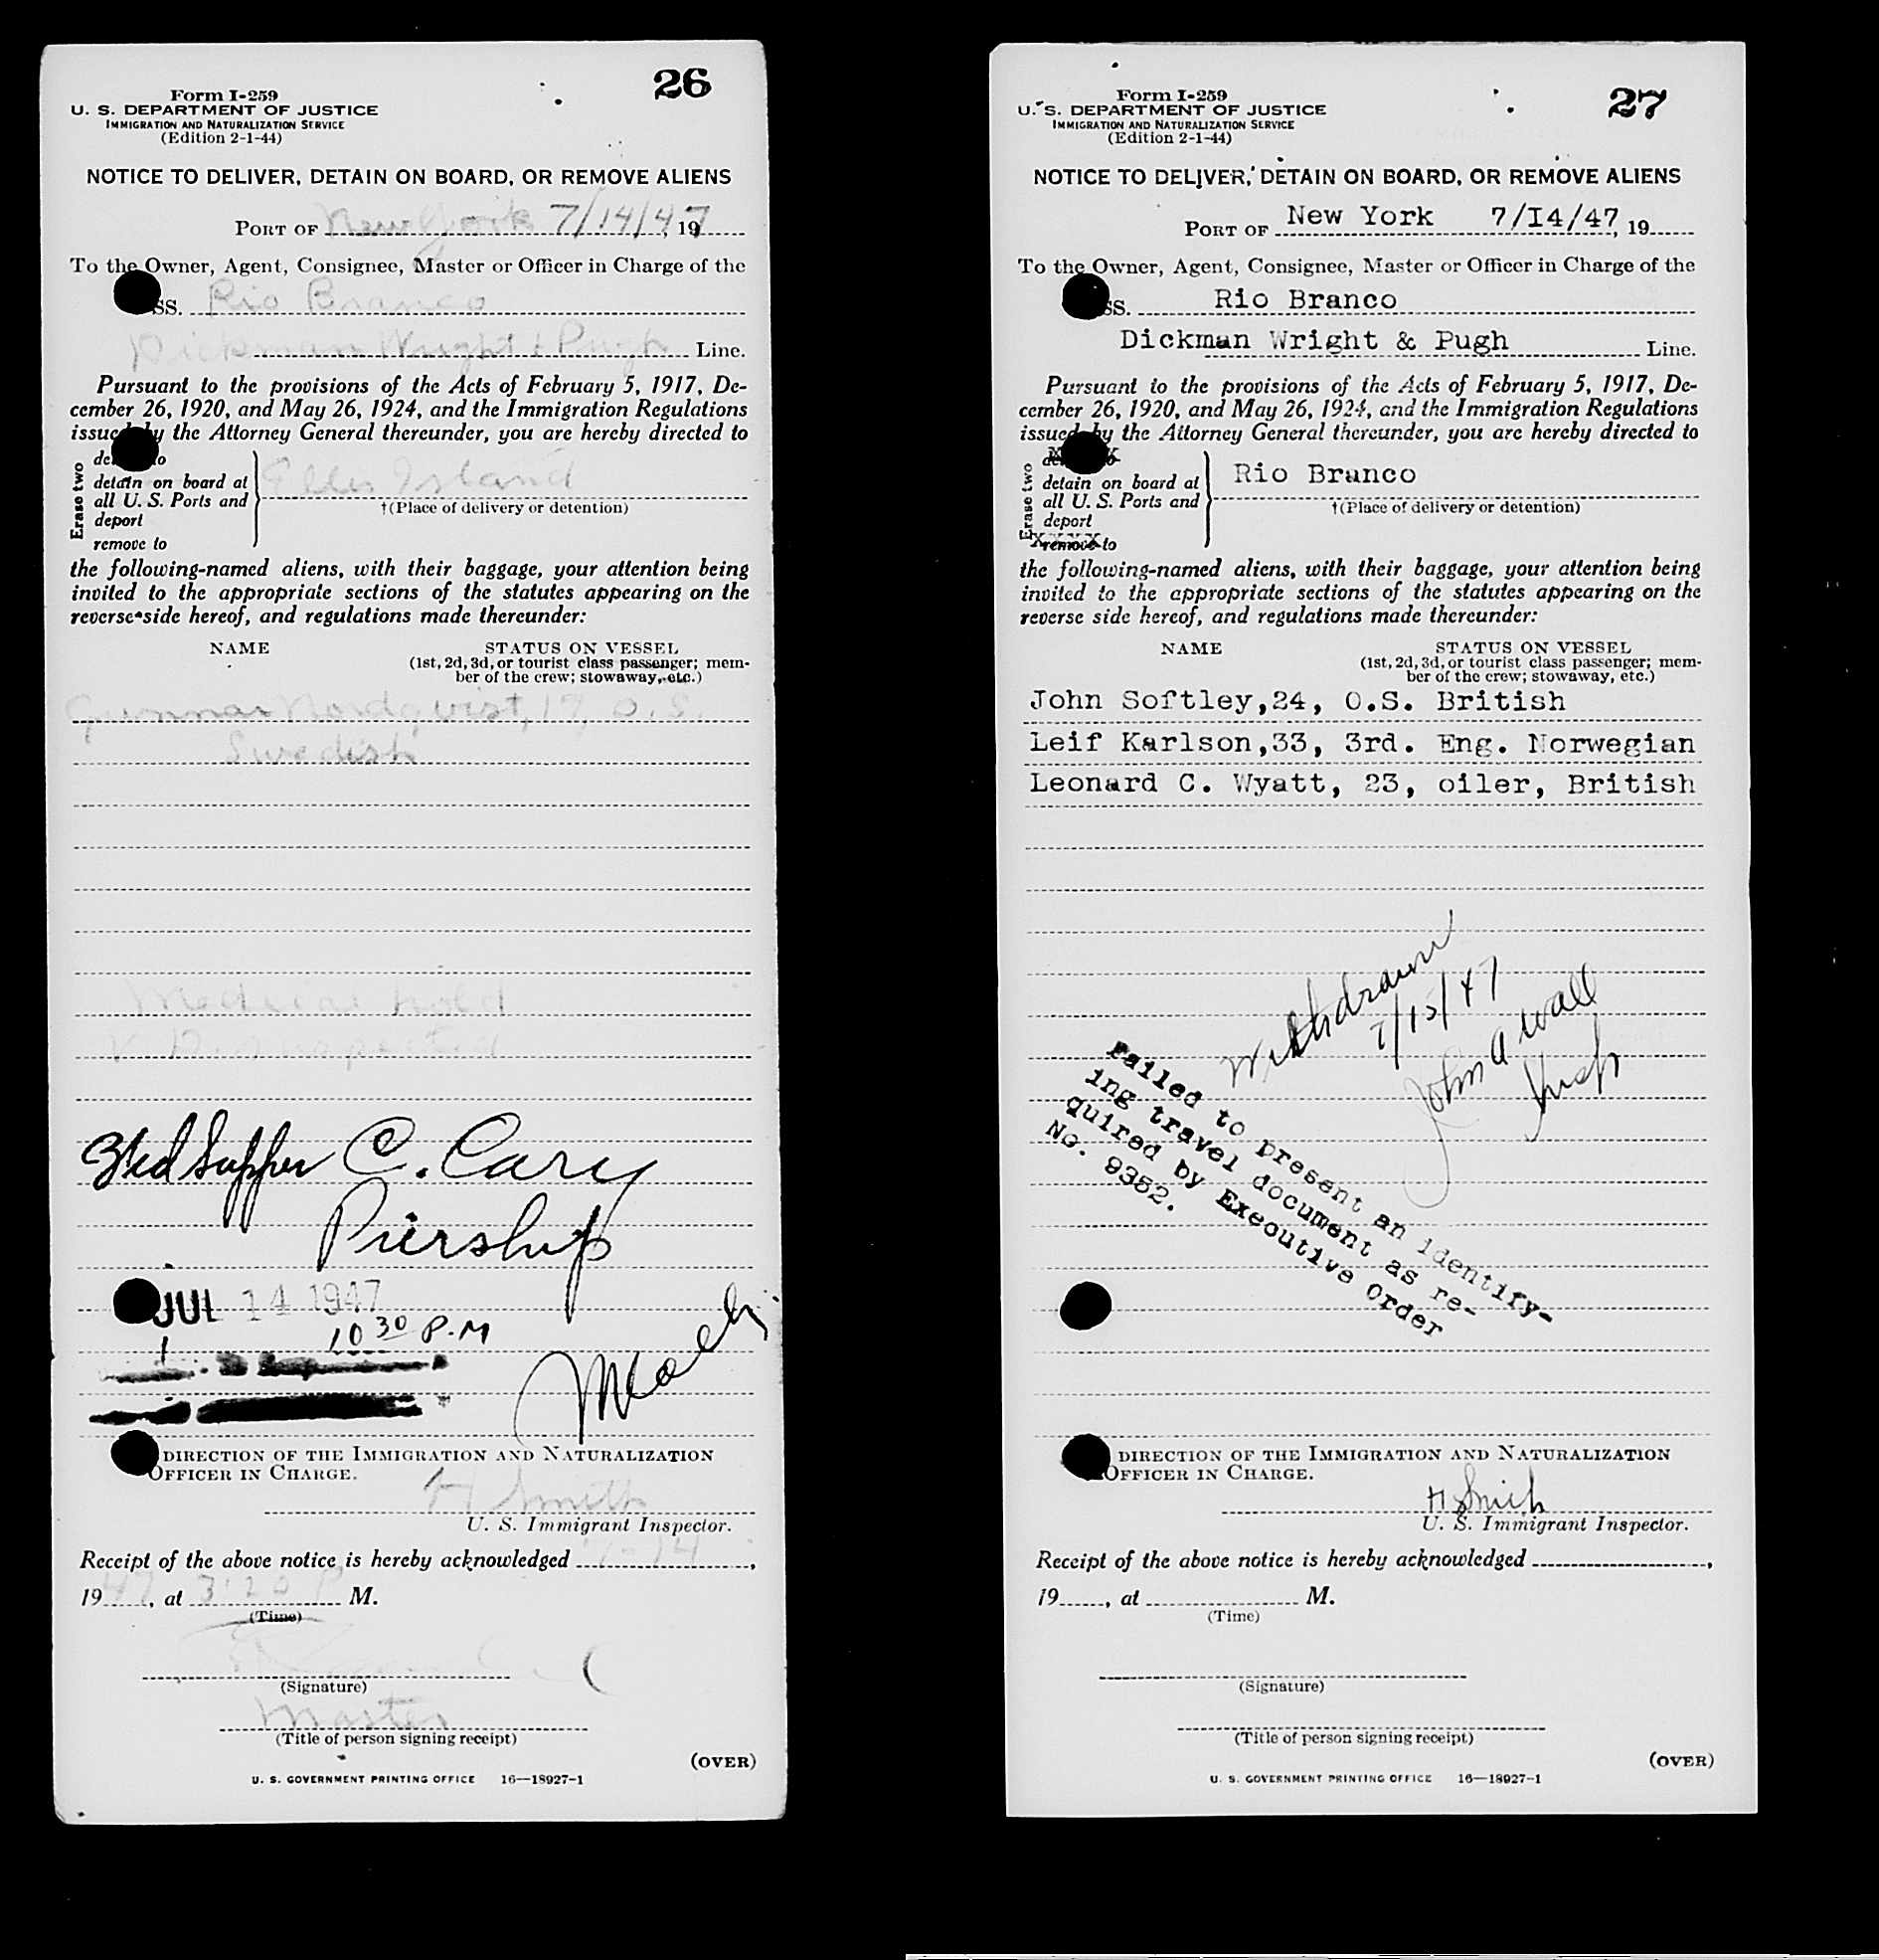 26
Form I-259
U. S. DEPARTMENT OF JUSTICE
IMMIGRATION AND NATURALIZATION SERVICE
(Edition 2-1-44)
NOTICE TO DELIVER, DETAIN ON BOARD, OR REMOVE ALIENS
PORT OF New York 7/14/47, 19
To the Owner, Agent, Consignee, Master or Officer in Charge of the
SS. Rio Branco
Dickman Wright & Pugh Line.
Pursuant to the provisions of the Acts of February 5, 1917, De-
cember 26, 1920, and May 26, 1924, and the Immigration Regulations
issued by the Attorney General thereunder, you are hereby directed to
Erase two
detain on board at
all U. S. Ports and
deport
remove to
Ellis Island
†(Place of delivery or detention)
the following-named aliens, with their baggage, your attention being
invited to the appropriate sections of the statutes appearing on the
reverse side hereof, and regulations made thereunder:
NAME STATUS ON VESSEL
(1st, 2d, 3d, or tourist class passenger; mem-
ber of the crew; stowaway, etc.)
Gunnar Nordqvist, 17, O.S.
Swedish
Medicine hold
V.D. suspected
C. Cary
JUL 14 1947
10 30 P.M
DIRECTION OF THE IMMIGRATION AND NATURALIZATION
OFFICER IN CHARGE.
H Smith
U. S. Immigrant Inspector.
Receipt of the above notice is hereby acknowledged 7-14,
1947, at 3:20 P M.
(Time)
(Signature)
Master
(Title of person signing receipt)
(OVER)
U. S. GOVERNMENT PRINTING OFFICE 16—18927-1
27
Form I-259
U. S. DEPARTMENT OF JUSTICE
IMMIGRATION AND NATURALIZATION SERVICE
(Edition 2-1-44)
NOTICE TO DELIVER, DETAIN ON BOARD, OR REMOVE ALIENS
PORT OF New York 7/I4/47, 19
To the Owner, Agent, Consignee, Master or Officer in Charge of the
SS. Rio Branco
Dickman Wright & Pugh Line.
Pursuant to the provisions of the Acts of February 5, 1917, De-
cember 26, 1920, and May 26, 1924, and the Immigration Regulations
issued by the Attorney General thereunder, you are hereby directed to
Erase two
detain on board at
all U. S. Ports and
deport
remove to
Rio Branco
†(Place of delivery or detention)
the following-named aliens, with their baggage, your attention being
invited to the appropriate sections of the statutes appearing on the
reverse side hereof, and regulations made thereunder:
NAME STATUS ON VESSEL
(1st, 2d, 3d, or tourist class passenger; mem-
ber of the crew; stowaway, etc.)
John Softley,24, O.S. British
Leif Karlson,33, 3rd. Eng. Norwegian
Leonard C. Wyatt, 23, oiler, British
Withdrawn
7/15/47
John A Wall
Insp
Failed to present an identify-
ing travel document as re-
quired by Executive Order
No. 9352.
DIRECTION OF THE IMMIGRATION AND NATURALIZATION
OFFICER IN CHARGE.
H Smith
U. S. Immigrant Inspector.
Receipt of the above notice is hereby acknowledged ,
19 , at M.
(Time)
(Signature)
(Title of person signing receipt)
(OVER)
U. S. GOVERNMENT PRINTING OFFICE 16—18927-1